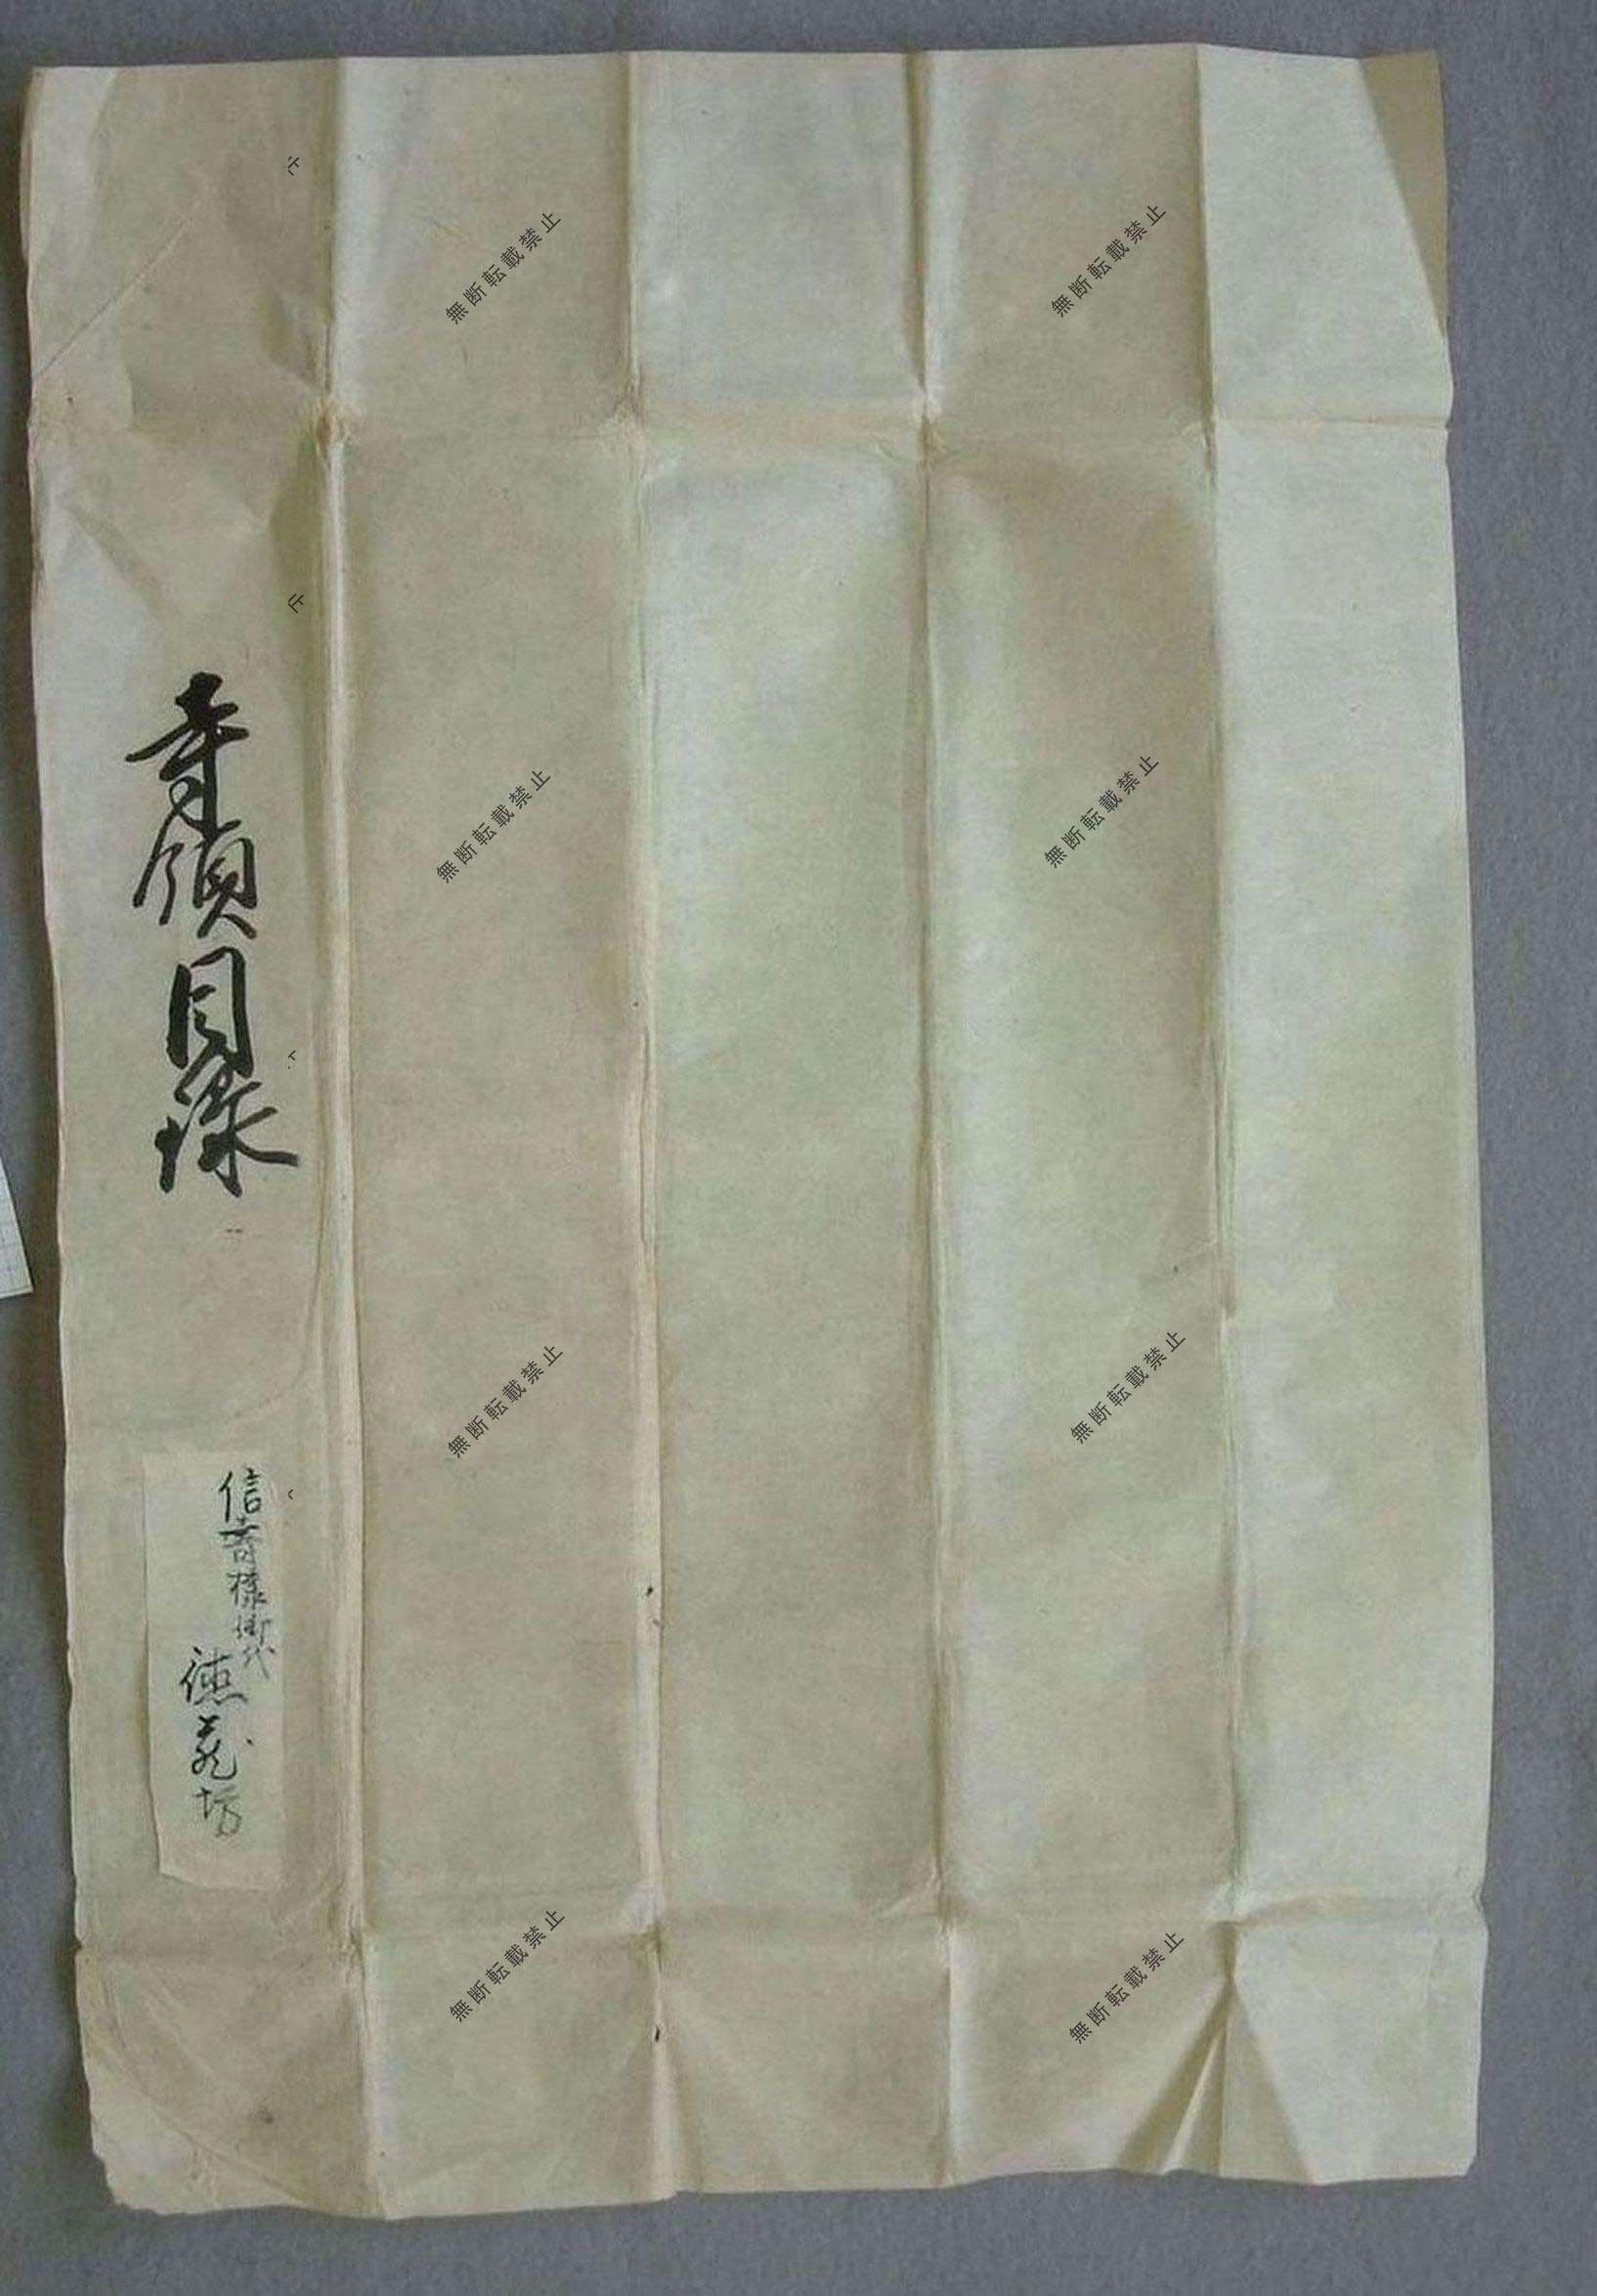 寺領目録
信寿様御代
徳蔵坊
無断転載禁止
無断転載禁止
無断転載禁止
無断転載禁止
無断転載禁止
無断転載禁止
無断転載禁止
無断転載禁止